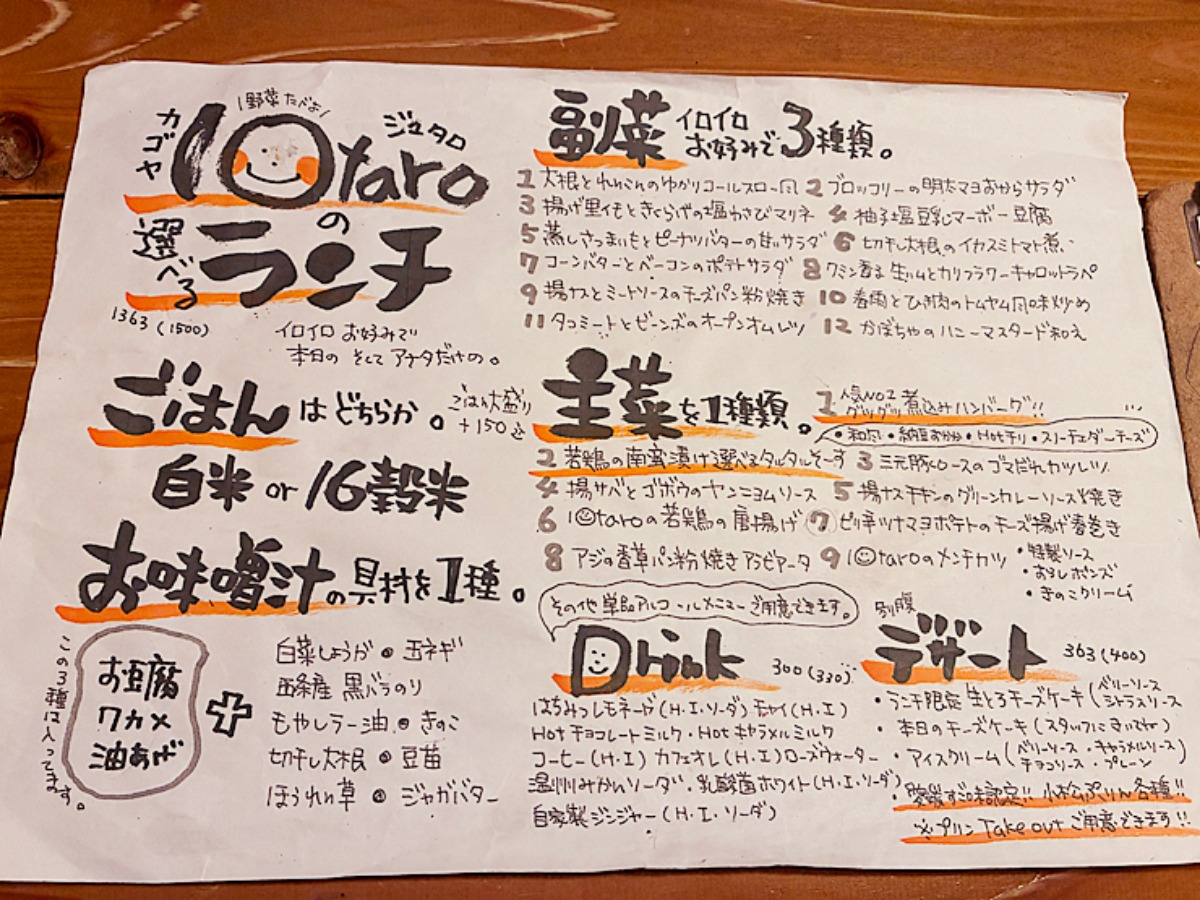 \野菜たべよ/
カゴヤ
10taro
ジュタロ
の
選べる
ランチ
1363(1500)
イロイロ お好みで
本日の そして アナタだけの。
ごはん はどちらか。
ごはん大盛り
+150込
白米 or 16穀米
お味噌汁の具材を1種。
この3種は入ってます。
お豆腐
ワカメ
油あげ
+
白菜しょうが・玉ネギ
五条産 黒バラのり
もやしラー油・きのこ
切干し大根・豆苗
ほうれい草・ジャガバター
副菜 イロイロ
お好みで3種類。
1 大根とれんこんのゆかりコールスロー風 2 ブロッコリーの明太マヨおからサラダ
3 揚げ里イモときくらげの塩わさびマリネ 4 柚子塩豆乳マーボー豆腐
5 蒸しさつまいもとピーナツバターの甘いサラダ 6 切干し大根のイカスミトマト煮
7 コーンバターとベーコンのポテトサラダ 8 クミン香る 生ハムとカリフラワーキャロットラペ
9 揚ナスとミートソースのチーズパン粉焼き 10 春雨とひき肉のトムヤム風味炒め
11 タコミートとビーンズのオープンオムレツ 12 かぼちゃのハニーマスタード和え
主菜を1種類。
1 人気NO1
グツグツ煮込みハンバーグ!!
・和風・納豆おかか・Hotチリ・スリーチェダーチーズ
2 若鶏の南蛮漬け選べるタルタルそーす 3 三元豚ロースのゴマだれカツレツ
4 揚サバとゴボウのヤンニョムソース 5 揚ナスチキンのグリーンカレーソース焼き
6 10taroの若鶏の唐揚げ 7 ピリ辛ツナマヨポテトのチーズ揚げ春巻き
8 アジの香草パン粉焼きアラビアータ 9 10taroのメンチカツ
・特製ソース
・おろしポンズ
・きのこクリーム
その他 単品アルコールメニューご用意できます。
Drink 300(330)
はちみつレモネード(H・I・ソーダ)チャイ(H・I)
Hotチョコレートミルク・Hotキャラメルミルク
コーヒー(H・I)カフェオレ(H・I)ローズウォーター
温州みかんソーダ・乳酸菌ホワイト(H・I・ソーダ)
自家製ジンジャー(H・I・ソーダ)
別腹
デザート 363(400)
・ランチ限定 生とろチーズケーキ(ベリーソース
シトラスソース
・本日のチーズケーキ(スタッフに
・アイスクリーム(ベリーソース・キャラメルソース
チョコソース・プレーン)
・愛媛すご味認定!! 小松ぷりん各種!!
※プリン Take out ご用意できます!!